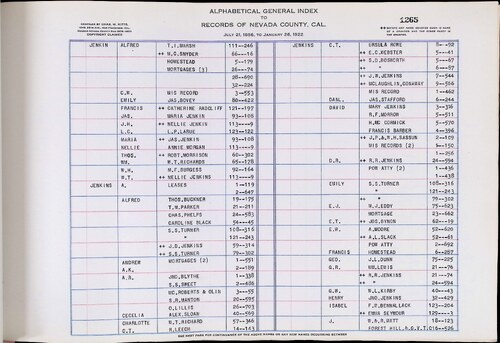 ALPHABETICAL GENERAL INDEX
TO
RECORDS OF NEVADA COUNTY, CAL.
JULY 21, 1856, TO JANUARY 26, 1932
1265
COPYRIGHT CLAIMED
JENKIN ALFRED T.I.MARSH 111—246
++ M.C.SNYDER 66—16
HOMESTEAD 5—179
MORTGAGES (3) 26—74
28—690
32—224
C.H. MIS RECORD 3—553
EMILY JAS.BOVEY 80—422
FRANCIS ++ CATHERINE RADCLIFF 121—197
JAS. MARIA JENKIN 93—108
J.H. ++ NELLIE JENKIN 113—9
L.C. L.P.LARUE 123—122
MARIA ++ JAS.JENKIN 93—108
NELLIE ANNIE MORGAN 113—9
THOS. ++ ROBT.MORRISON 60—302
WM. W.T.RICHARDS 65—178
W.H. M.F.BURGESS 92—164
W.T. ++ NELLIE JENKINS 113—9
JENKINS A. LEASES 1—119
2—647
ALFRED THOS.BUCKNER 19—175
T.W.PARKER 21—211
CHAS.PHELPS 24—583
CAROLINE BLACK 54—45
S.S.TURNER 108—316
" 121—243
++ J.D.JENKINS 59—314
++ S.S.TURNER 79—302
ANDREW MORTGAGES (2) 1—551
A.K. 2—189
A.R. JNO.BLYTHE 1—338
S.S.SWEET 2—486
WC.ROBERTS & OLIN 3—55
S.R.MARTUM 20—595
O.LILLIS 26—703
CECELIA ALEX.SLOAN 40—569
CHARLOTTE W.T.RICHARD 57—346
C.T. N.LEECH 14—143
JENKINS C.T. URSULA ROWE 5—92
++ E.C.SNOWDEN 5—41
++ S.O.BOSWORTH 5—67
++ " 5—67
++ J.W.JENKINS 7—544
++ MCLAUGHLIN,CONABOY 9—566
MIS RECORD 1—462
DANL. JAS.STAFFORD 6—244
DAVID MARY JENKINS 3—316
R.F.MORROW 5—511
H.MC CORMICK 5—570
FRANCIS BARBER 4—396
MIS RECORDS (2) 9—150
1—256
D.R. ++ R.R.JENKINS 24—594
POR ATTY (2) 1—436
1—438
EMILY S.S.TURNER 108—316
" 121—243
++ " 79—302
E.J. N.J.EDDY 75—623
MORTGAGE 23—662
E.T. ++ JOS.BYNON 62—19
E.W. A.MOORE 52—620
++ A.L.SLACK 52—61
POR ATTY 2—692
FRANCIS HOMESTEAD 6—287
GEO. J.L.DUNN 75—225
G.R. WM.LEWIS 21—76
++ R.R.JENKINS 21—74
++ " 24—594
G.W. W.L.KIRBY 40—43
HENRY JNO.JENKINS 32—429
ISABEL F.W.BERNALLACH 123—204
++ EMMA SEYMOUR 129—3
J. W.& R.WATT 18—123